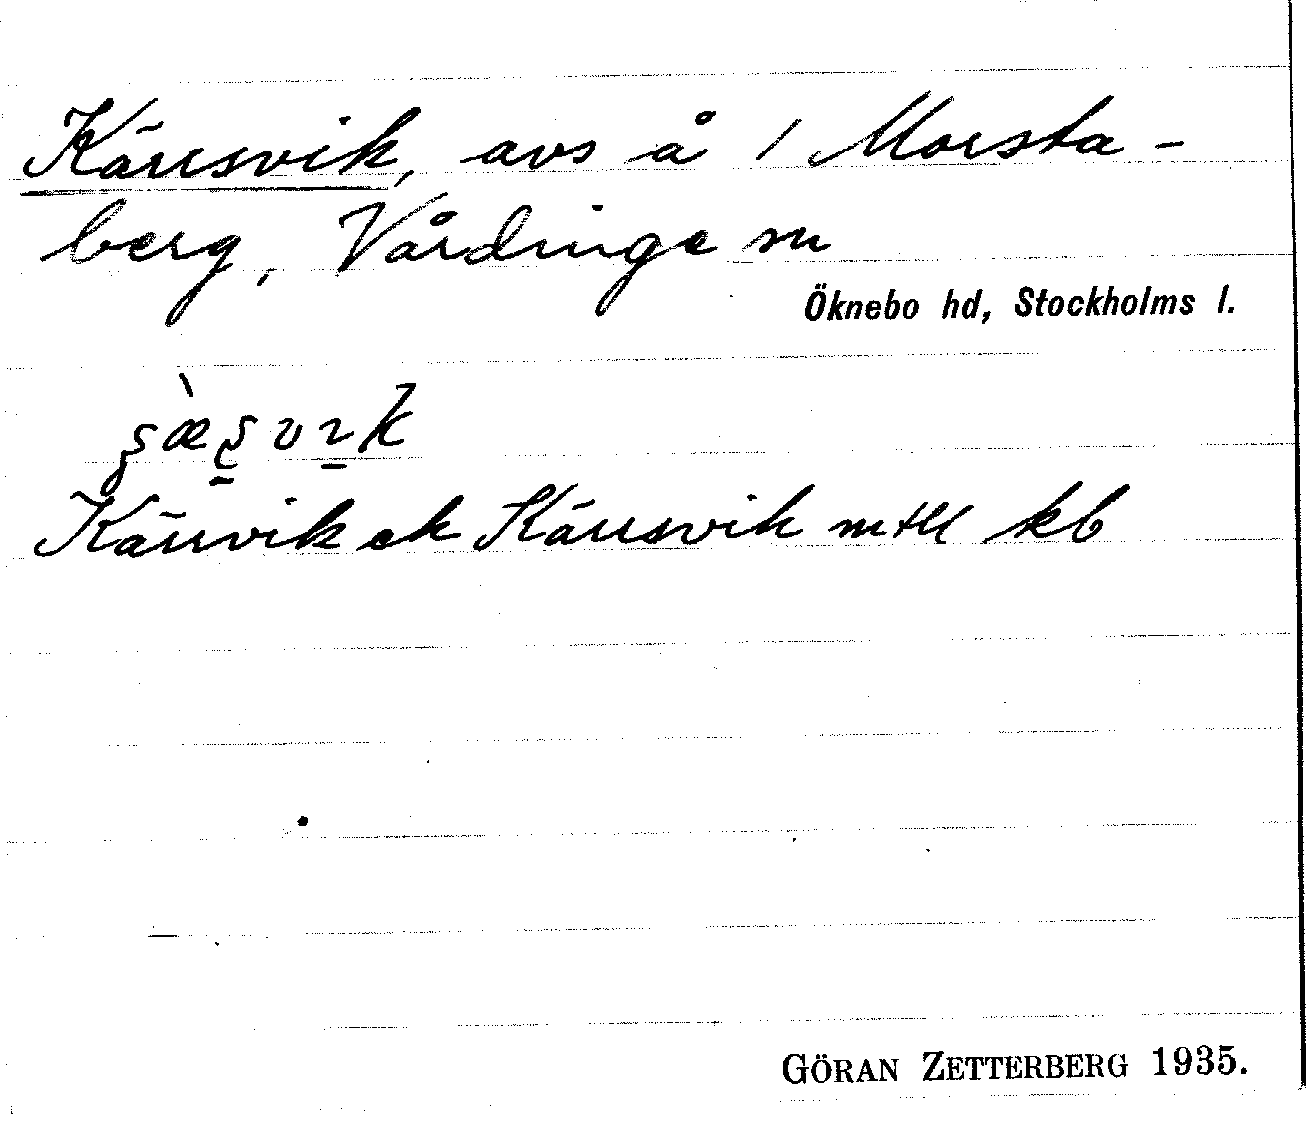 Kärrsvik, avs å 1 Morsta-
berg, Vårdinge sn
Öknebo hd, Stockholms l.
Kärrvik ek Kärrsvik mtll kb
GÖRAN ZETTERBERG 1935.